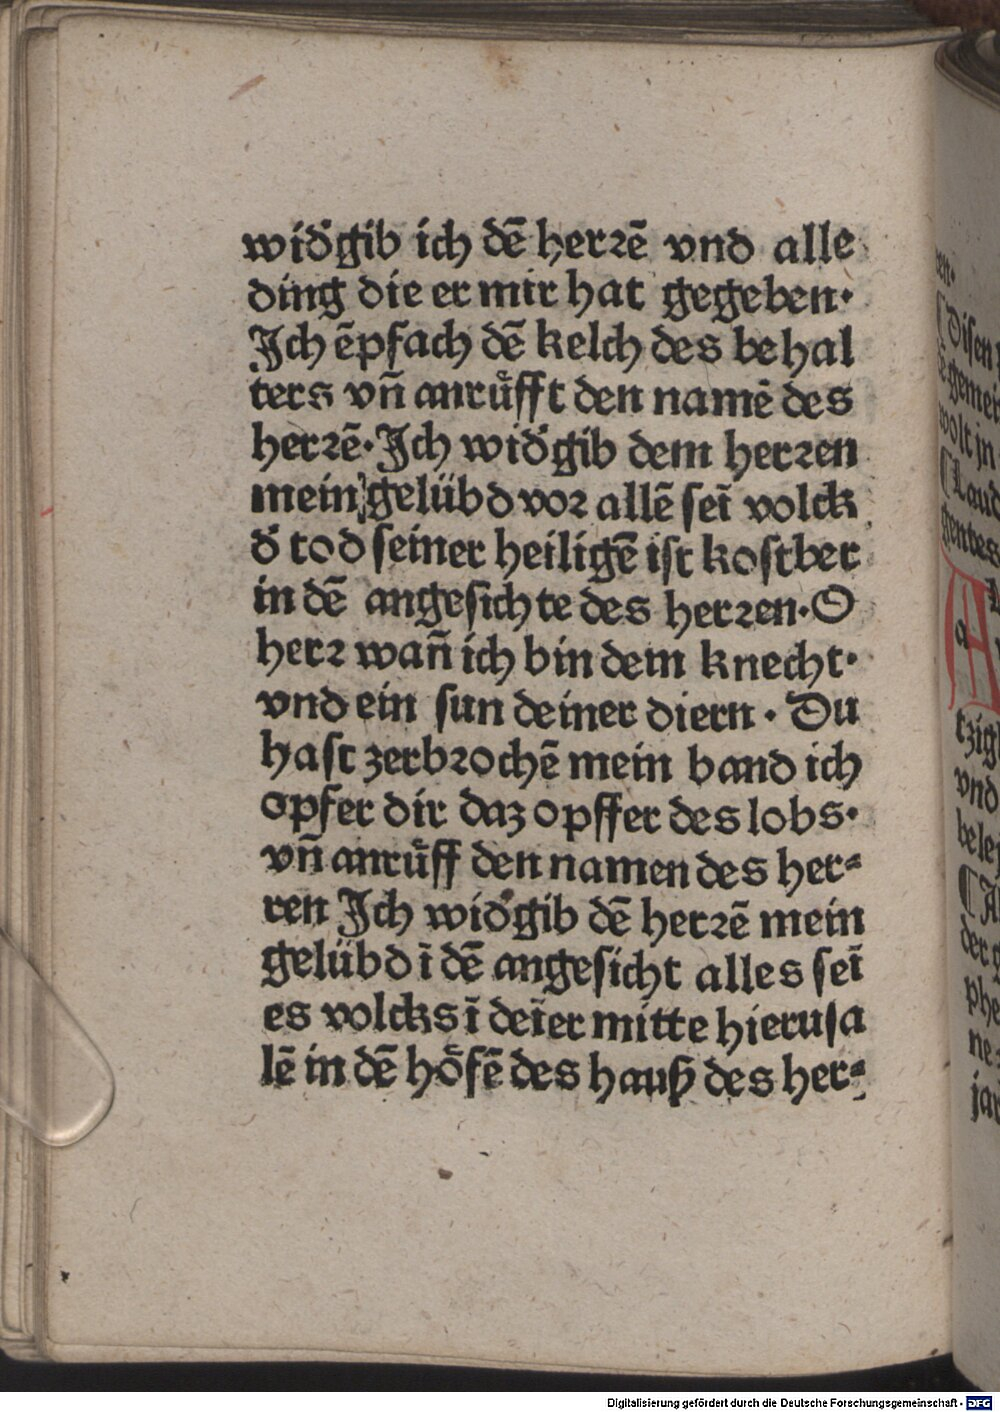 widͤgib ich dē herꝛē vnd alle
ding die er mir hat gegeben·
Jch ēpfach dē kelch des behal
ters vn̄ anruͤfft den namē des
herꝛē· Jch widͤgib dem herꝛen
mein gelübd voꝛ allē ſeī volck
dͤ tod ſeiner heiligē iſt koſtber
in dē angeſichte des herꝛen· O
herꝛ wan̄ ich bin dem knecht·
vnd ein ſun deiner diern · Du
haſt zerbꝛochē mein band ich
opfer dir daz opffer des lobs·
vn̄ anruͤff den namen des her⸗
ren Jch widͤgib dē herꝛē mein
gelübd ī dē angeſicht alles ſeī
es volcks ī deīer mitte hieruſa
lē in dē hoͤfē des hauß des her⸗
en·
Diſen
gemei
wolt in
Laud
gentes
A
a
tzig
vnd
beley
A
der
phe
ne
jar
Digitalisierung gefördert durch die Deutsche Forschungsgemeinschaft - DFG